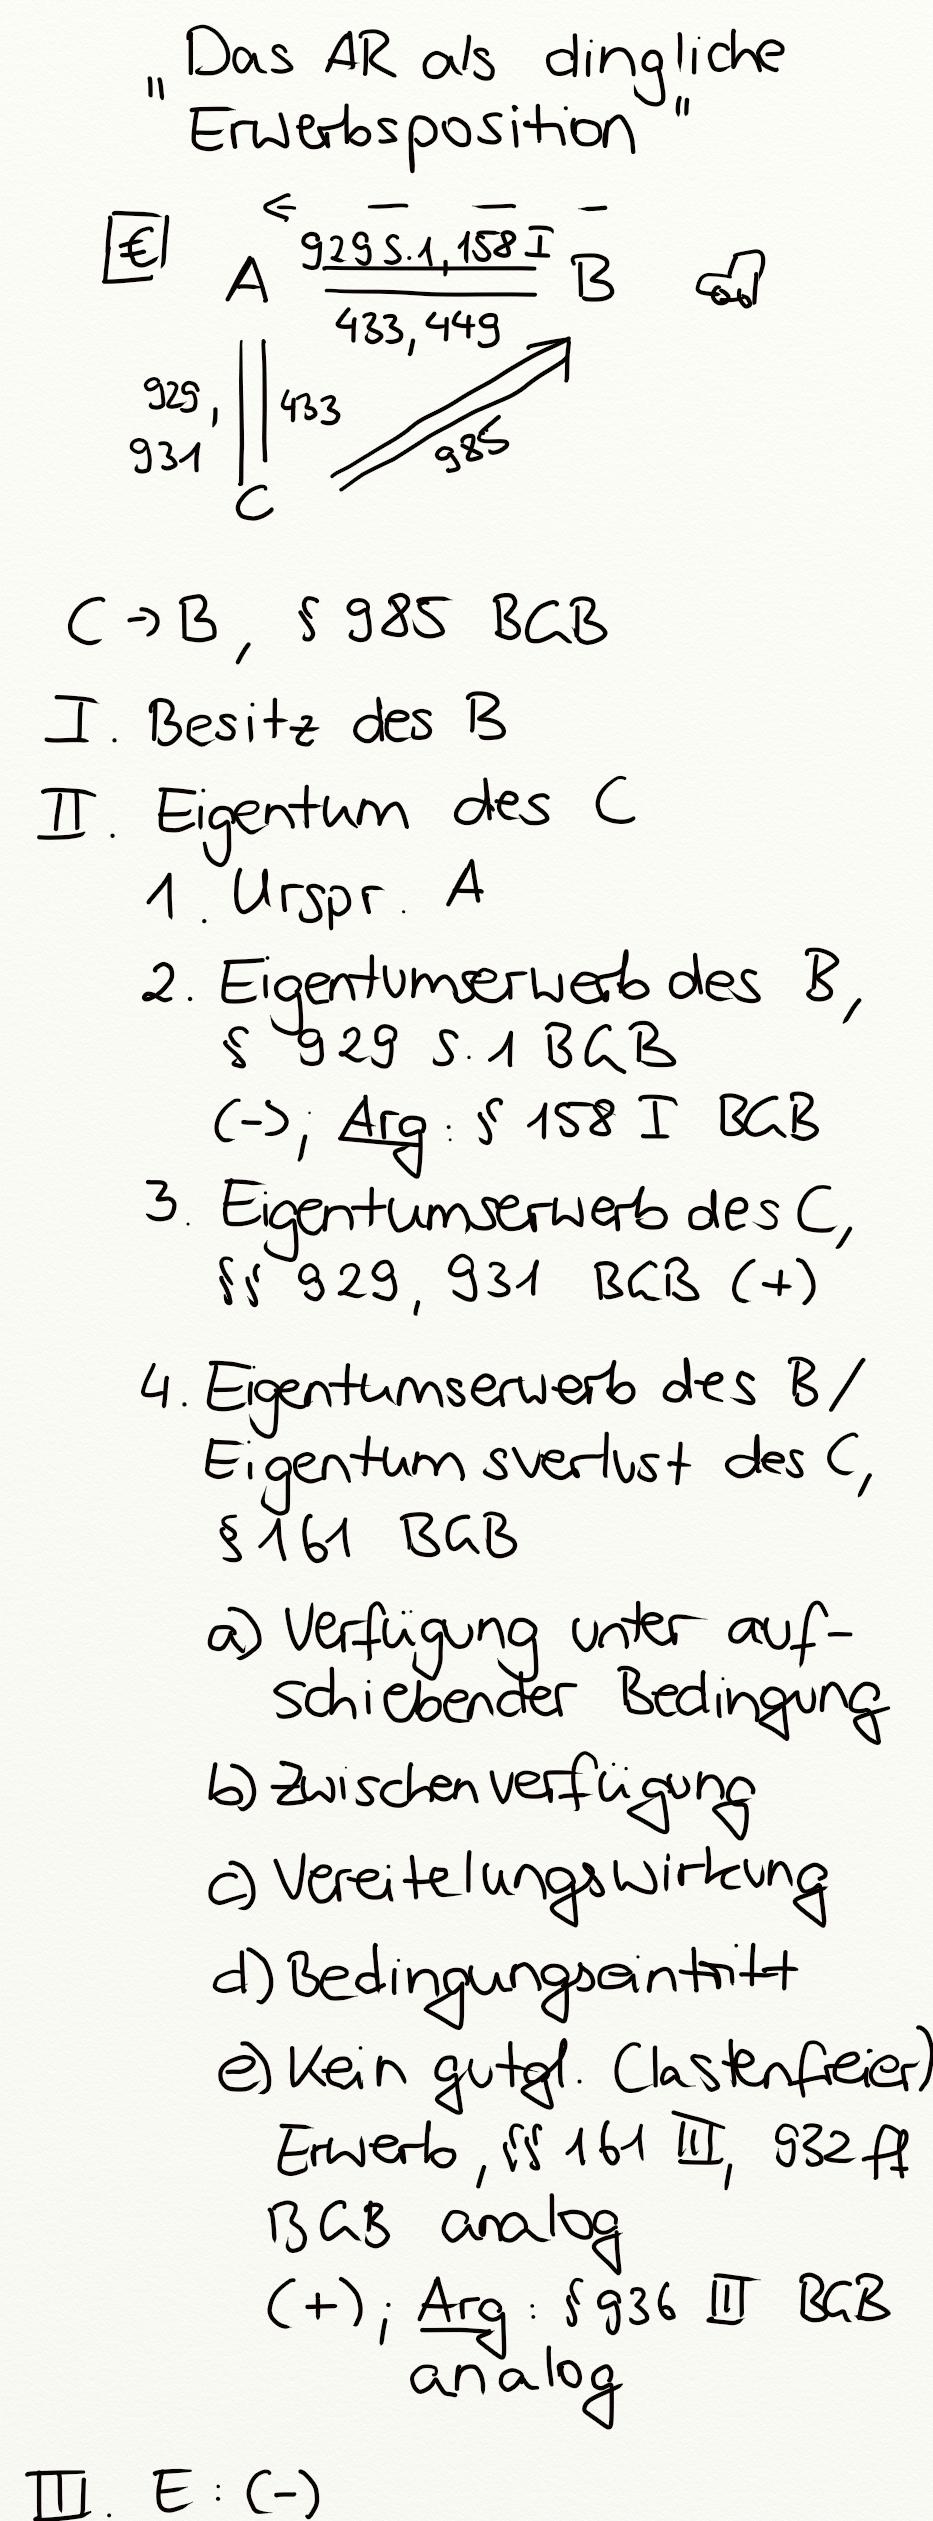 „Das AR als dingliche
Erwerbsposition"
€
929 S.1, 158 I
A B
433, 449
929, 433
931 985
C
C → B, § 985 BGB
I. Besitz des B
II. Eigentum des C
1. Urspr. A
2. Eigentumserwerb des B,
§ 929 S. 1 BGB
(-); Arg: § 158 I BGB
3. Eigentumserwerb des C,
§§ 929, 931 BGB (+)
4. Eigentumserwerb des B/
Eigentumsverlust des C,
§ 161 BGB
a) Verfügung unter auf-
schiebender Bedingung
b) Zwischenverfügung
c) Vereitelungswirkung
d) Bedingungseintritt
e) Kein gutgl. (lastenfreier)
Erwerb, §§ 161 III, 932 ff
BGB analog
(+); Arg: § 936 III BGB
analog
III. E: (-)